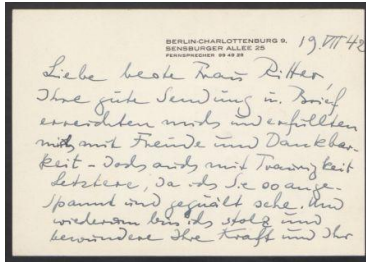 BERLIN-CHARLOTTENBURG 9,
SENSBURGER ALLEE 25
FERNSPRECHER 99 49 29
19.VII 42
Liebe beste Frau Ritter,
Ihre gute Sendung u. Brief
erreichten mich und erfüllten
mich mit Freude und Dankbar-
keit - doch auch mit Traurigkeit
Letztere, da ich Sie so ange-
spannt und gequält sehe. Und
wiederum bin ich stolz und
bewundere Ihre Kraft und Ihr